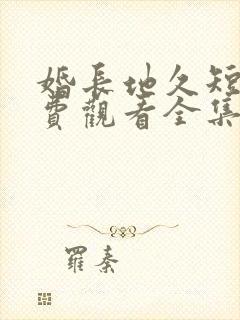 婚長地久短
費觀看全集
羅秦